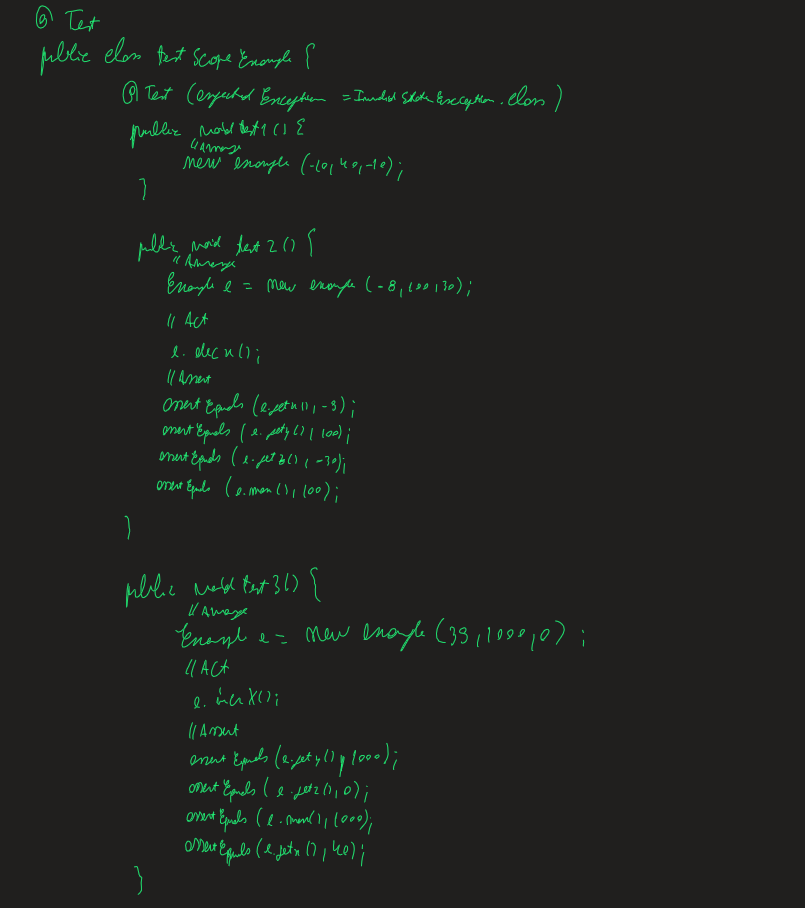 @ Test
public class test Scope Example {
@ Test (expected Exception = Invalid State Exception. class)
public void test1 () {
// Arrange
new example (-10, 40, -10);
}
public void test 2 () {
// Arrange
Example e = new example (-8, 100, 30);
// Act
e. dec x();
// Assert
assert Equals (e.getx(), -9);
assert Equals (e. gety(), 100);
assert Equals (e. get z(), -30);
assert Equals (e. max (), 100);
}
public void test 3() {
// Arrange
Example e = new example (39, 1000, 0);
// Act
e. incr X();
// Assert
assert Equals (e.get y(), 1000);
assert Equals (e. get z(), 0);
assert Equals (e. max(), 1000);
assert Equals (e.get x (), 40);
}